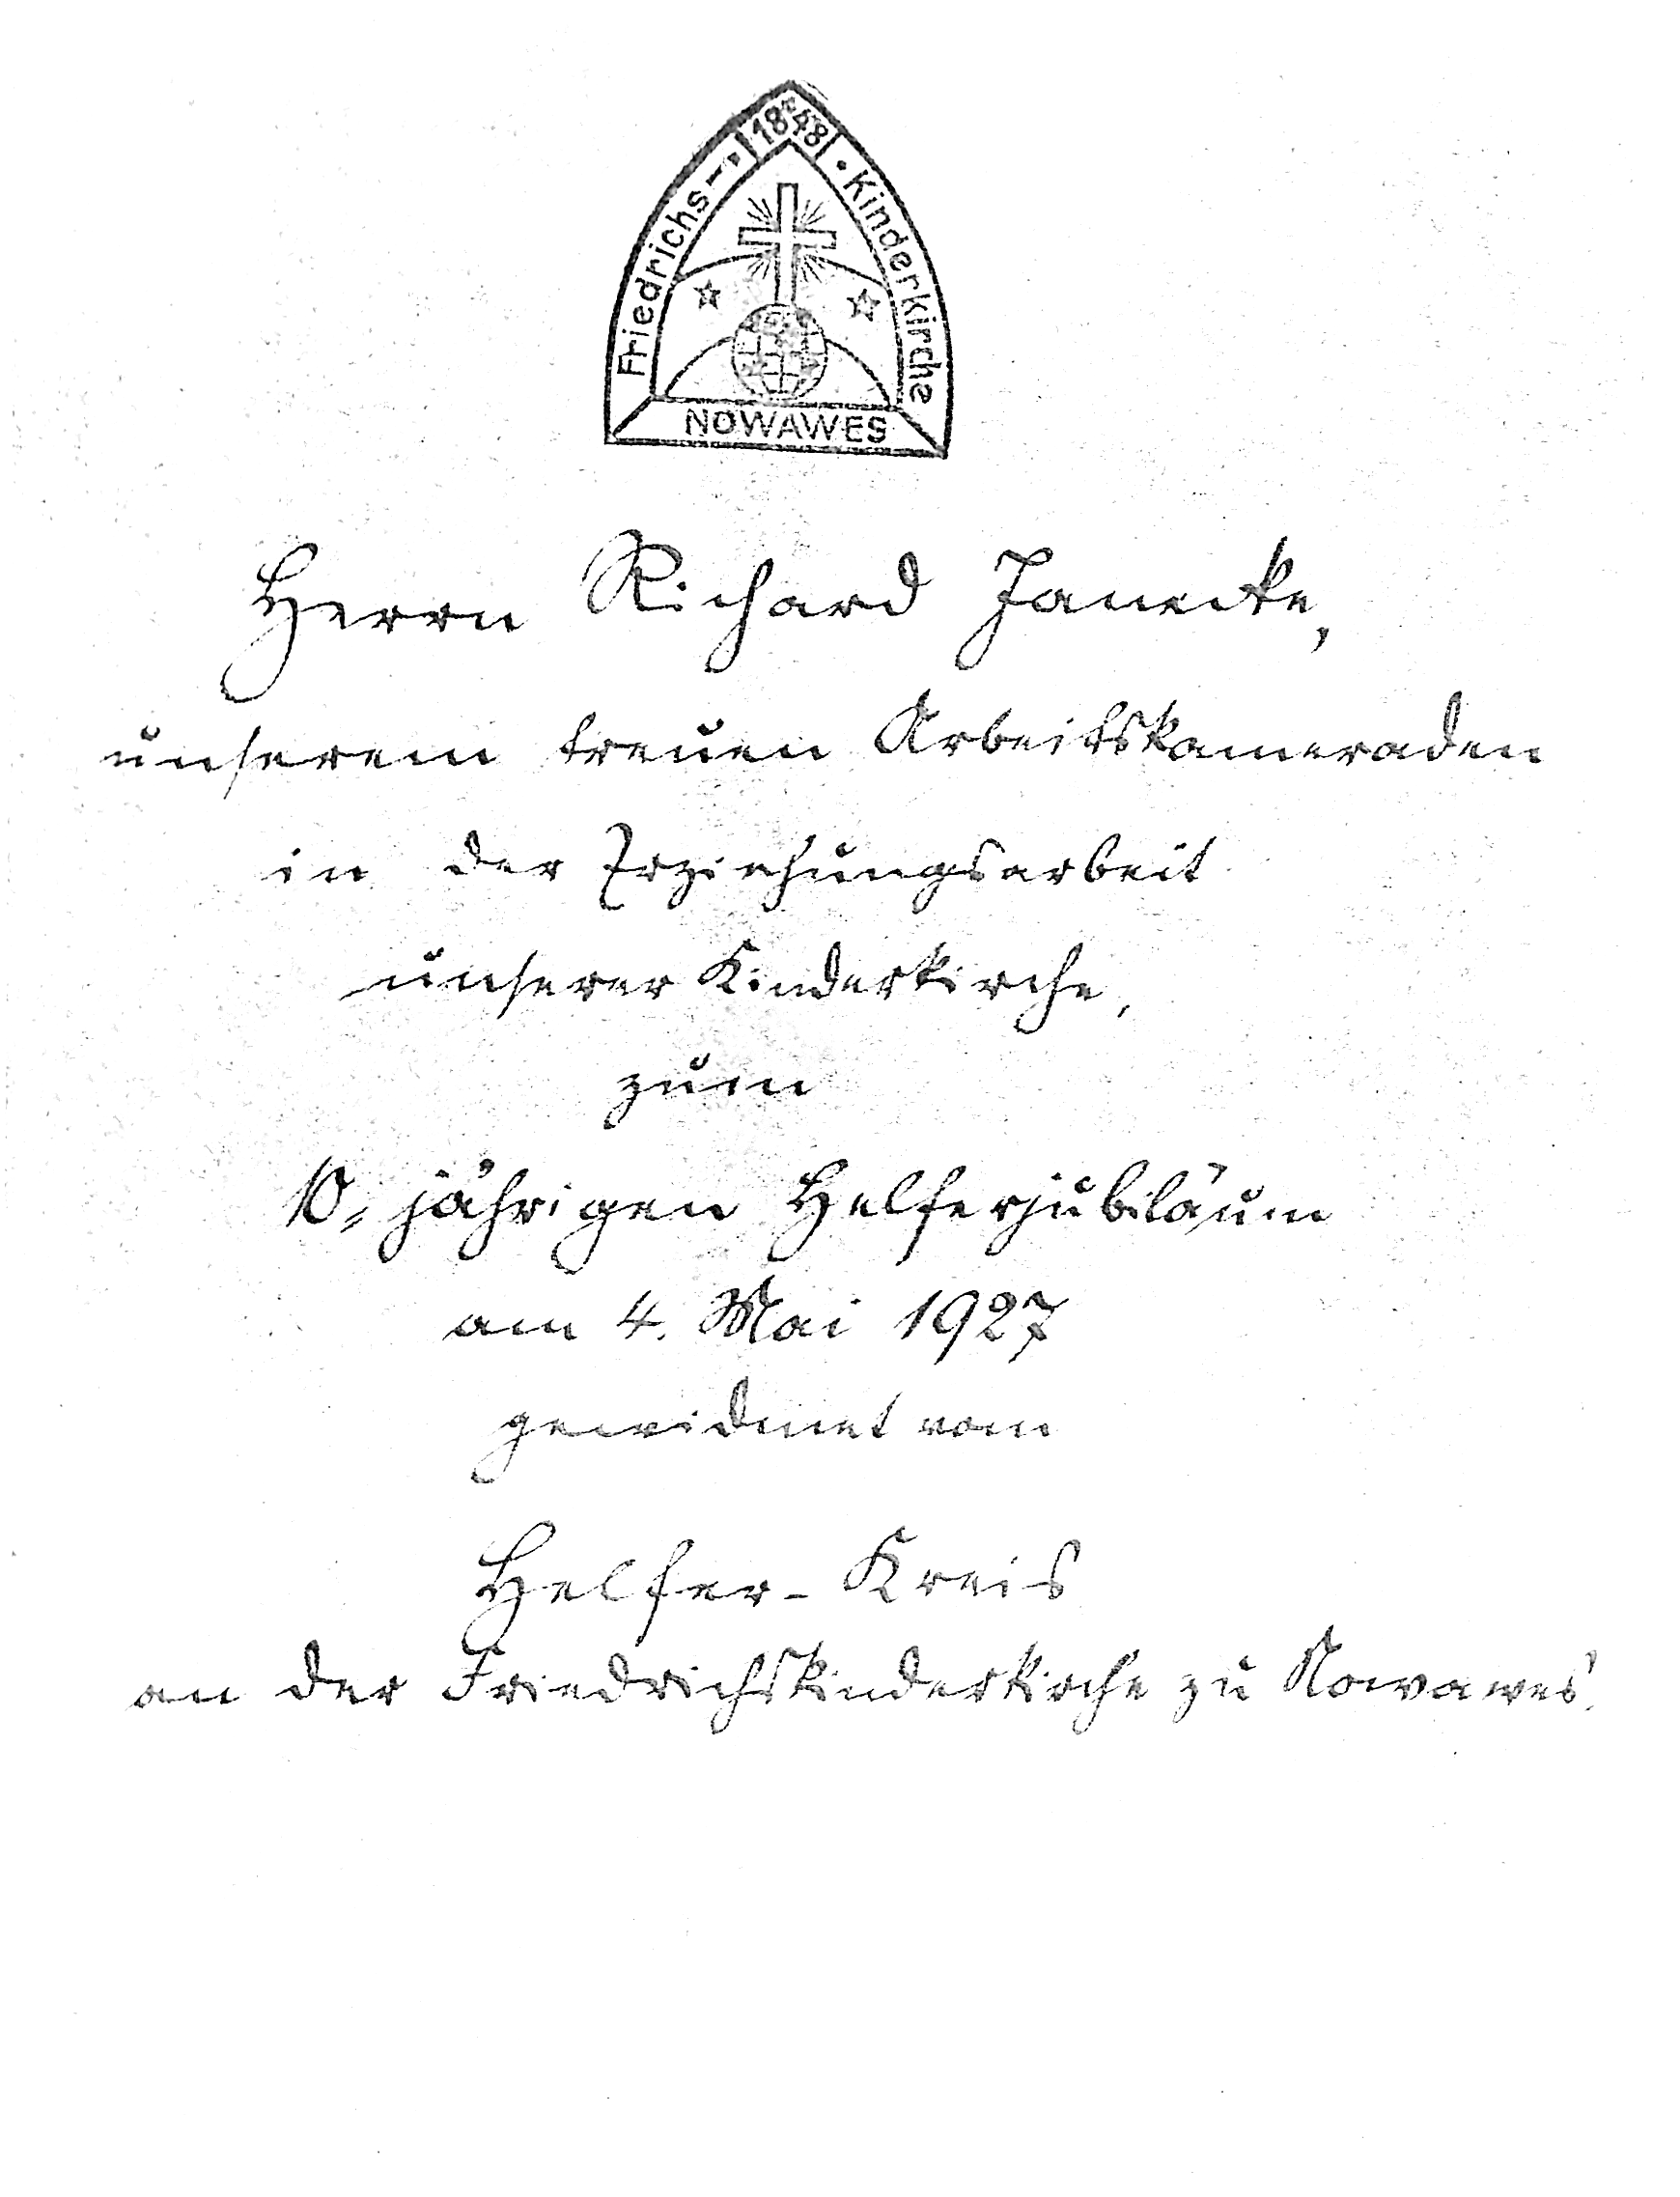 Friedrichs- · 1848 · Kinderkirche
NOWAWES
Herrn Richard Janecke,
unserem treuen Arbeitskameraden
in der Erziehungsarbeit
unserer Kinderkirche,
zum
10-jährigen Helferjubiläum
am 4. Mai 1927
gewidmet vom
Helfer-Kreis
an der Friedrichskinderkirche zu Nowawes.